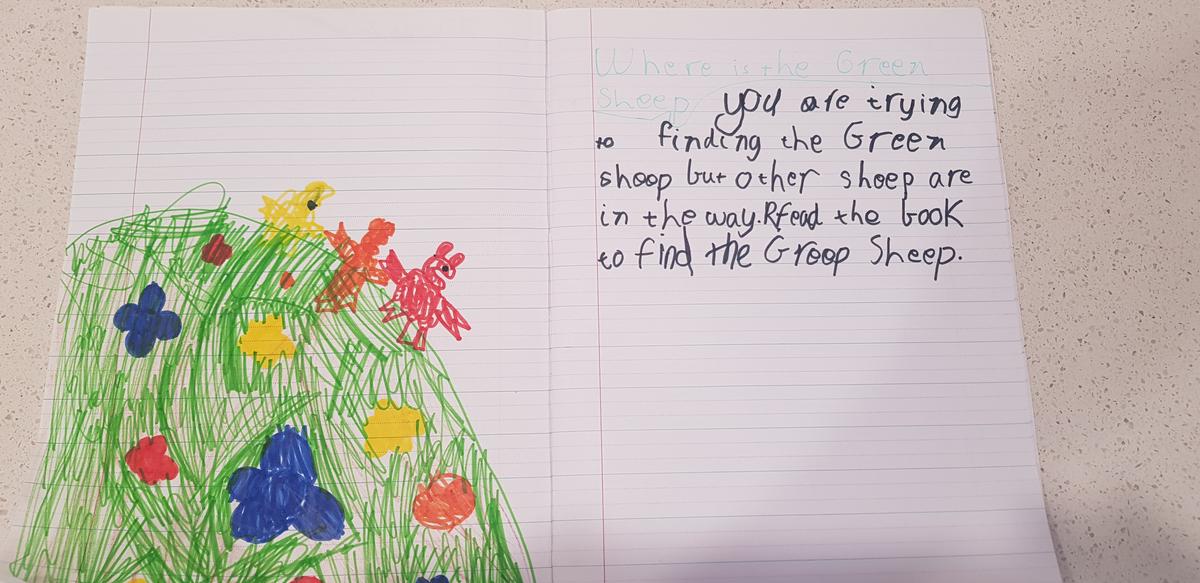 Where is the Green
Sheep you are trying
to finding the Green
shoop but other sheep are
in the way. Rfead the book
to find the Groop Sheep.